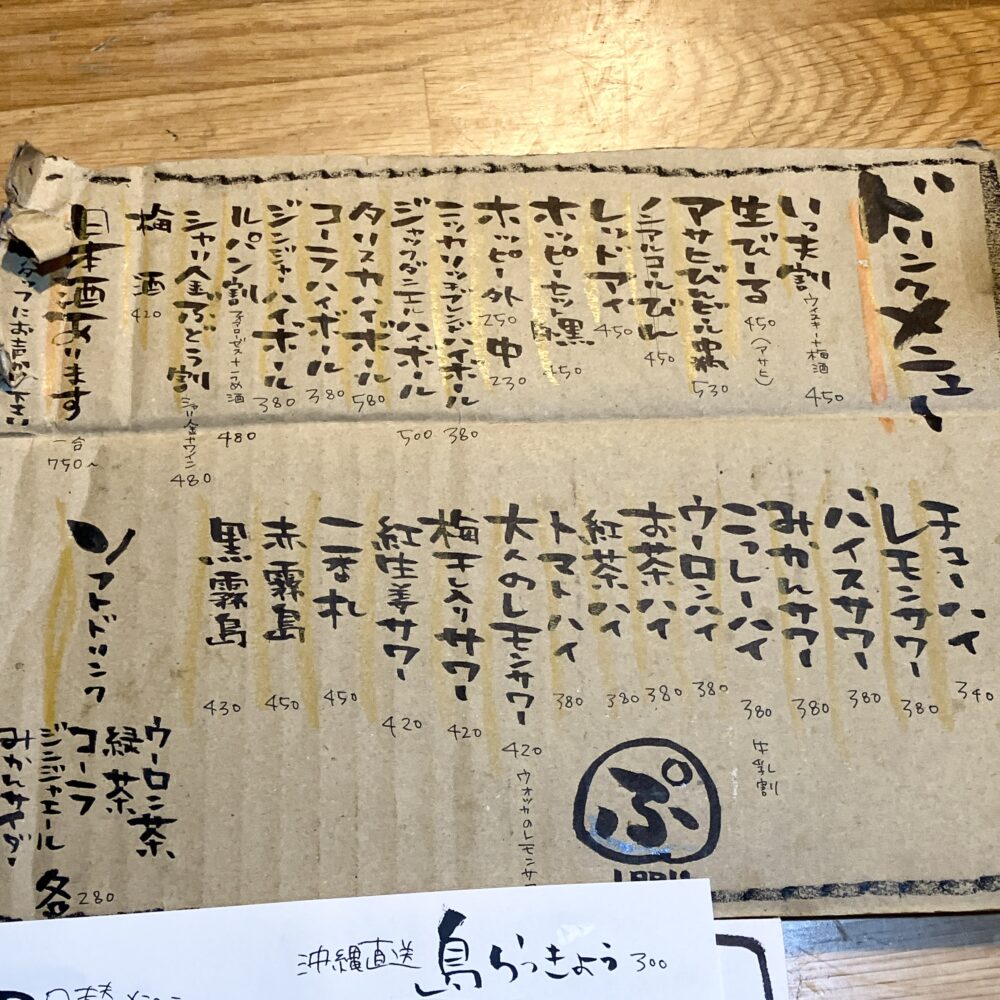 ドリンクメニュー
いっ夫割 ウイスキー+梅酒 450
生びーる 450 (アサヒ)
アサヒびんビール 530
ノンアルコールびん 450
レッドアイ 450
ホッピーセット 黒 450
ホッピー 外 250 中 230
ニッカリッチブレンドハイボール 380
ジャックダニエルハイボール 500
タリスカハイボール 580
コーラハイボール 380
ジンジャーハイボール 380
ルパン割 480
シャリ金ぶどう割 シャリ金+ワイン 480
梅酒 420
日本酒あります 一合 750~
スタッフにお声がけ下さい
チューハイ 340
レモンサワー 380
バイスサワー 380
みかんサワー 380
こっしーハイ 380 牛乳割
ウーロンハイ 380
お茶ハイ 380
紅茶ハイ 380
トマトハイ 380
大人のレモンサワー 420 ウォッカのレモンサ
梅干し入りサワー 420
紅生姜サワー 420
二番札 450
赤霧島 450
黒霧島 430
ソフトドリンク
ウーロン茶
緑茶
コーラ
ジンジャエール
みかんサイダー
各280
ぷ
沖縄直送 島らっきょう 300